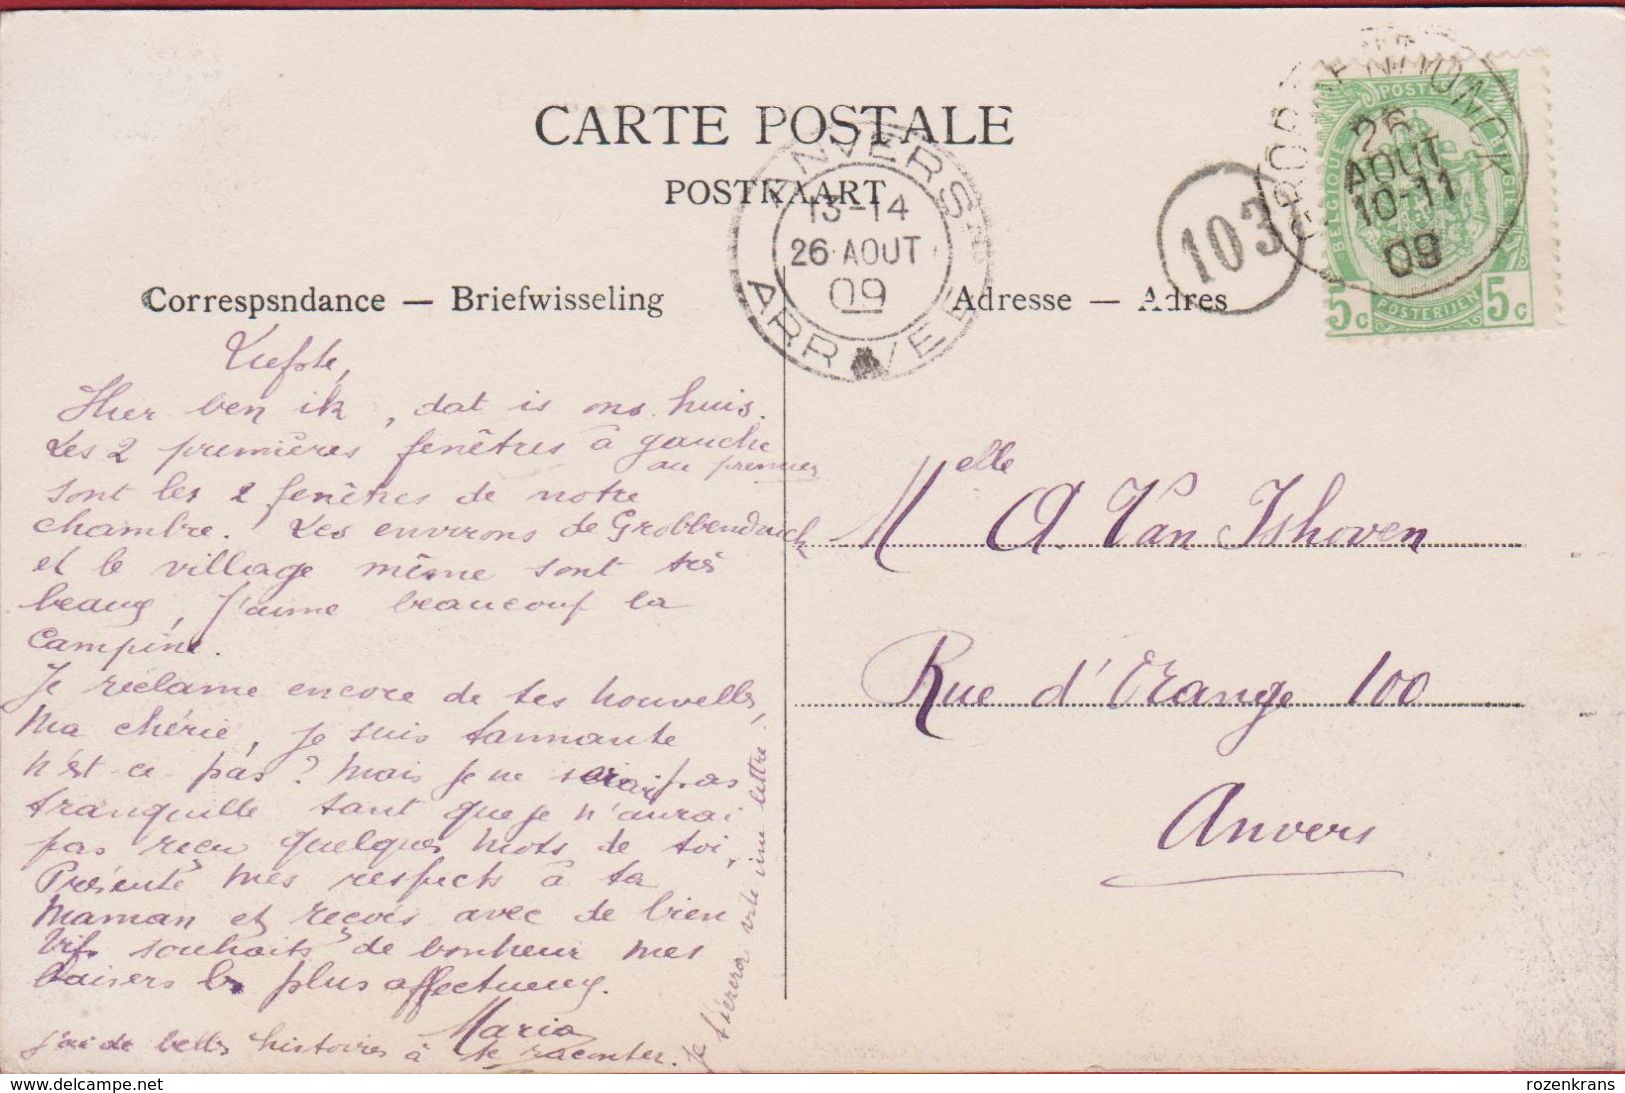 CARTE POSTALE
POSTKAART
Correspsndance — Briefwisseling
Adresse — Adres
ANVERS
13-14
26 AOUT
09
ARRIVEE
103
GROBBENDONCK
26
AOUT
10-11
09
POSTES
BELGIQUE
BELGIË
5c POSTERIJEN 5c
Liefste,
Hier ben ik, dat is ons huis.
Les 2 premières fenêtres à gauche
au premier
sont les 2 fenêtres de notre
chambre. Les environs de Grobbendonck
et le village même sont très
beaux, j'aime beaucoup la
Campine.
Je réclame encore de tes nouvelles,
ma chérie, je suis tannante
n'est-ce pas? Mais je ne serai pas
tranquille tant que je n'aurai
pas reçu quelques mots de toi,
Présente mes respects à ta
Maman et reçois avec de bien
vifs souhaits de bonheur mes
baisers les plus affectueux.
Maria
j'ai de belles histoires à te raconter.
Je t'écrirai vite une lettre.
Melle A. Van Ishoven
Rue d'Orange 100
Anvers
rozenkrans